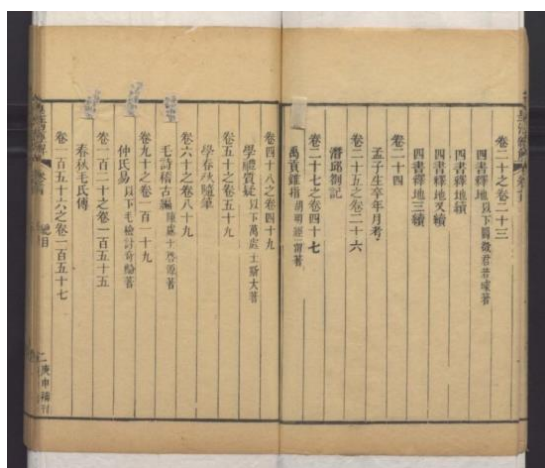 皇清經解
卷首
卷二十之卷二十三
四書釋地以下閻徵君若璩著
四書釋地續
四書釋地又續
四書釋地三續
卷二十四
孟子生卒年月考
卷二十五之卷二十六
潛邱劄記
卷二十七之卷四十七
禹貢錐指胡明經渭著
卷四十八之卷四十九
學禮質疑以下萬處士斯大著
卷五十之卷五十九
學春秋隨筆
卷六十之卷八十九
毛詩稽古編陳處士啓源著
卷九十之卷一百一十九
仲氏易以下毛檢討奇齡著
卷一百二十之卷一百五十五
春秋毛氏傳
卷一百五十六之卷一百五十七
皇清經解
卷首
總目
二
庚申補刊